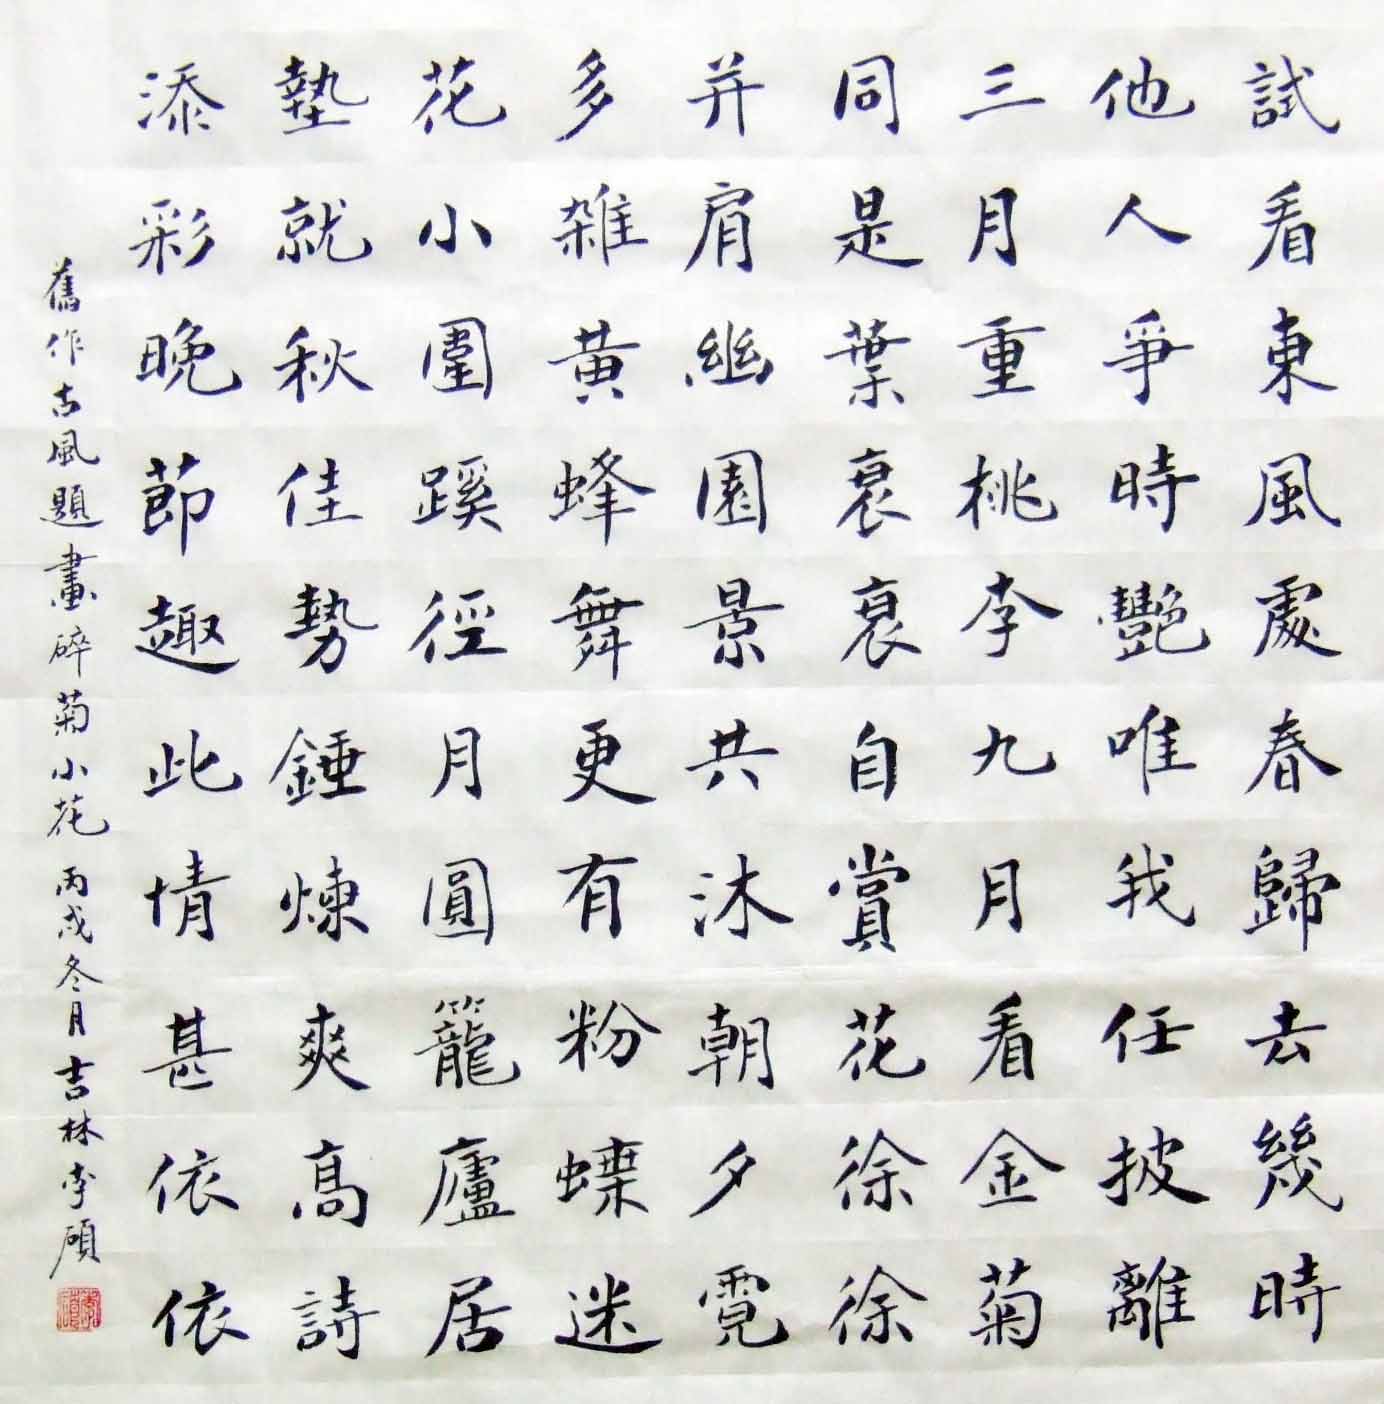 試看東風處春歸去幾時
他人爭時艷唯我任披離
三月重桃李九月看金菊
同是葉衰衰自賞花徐徐
并肩幽園景共沐朝夕霓
多雜黃蜂舞更有粉蝶迷
花小圍蹊徑月圓籠廬居
墊就秋佳勢錘煉爽高詩
添彩晚節趣此情甚依依
舊作古風題畫碎菊小花丙戌冬月吉林李碩